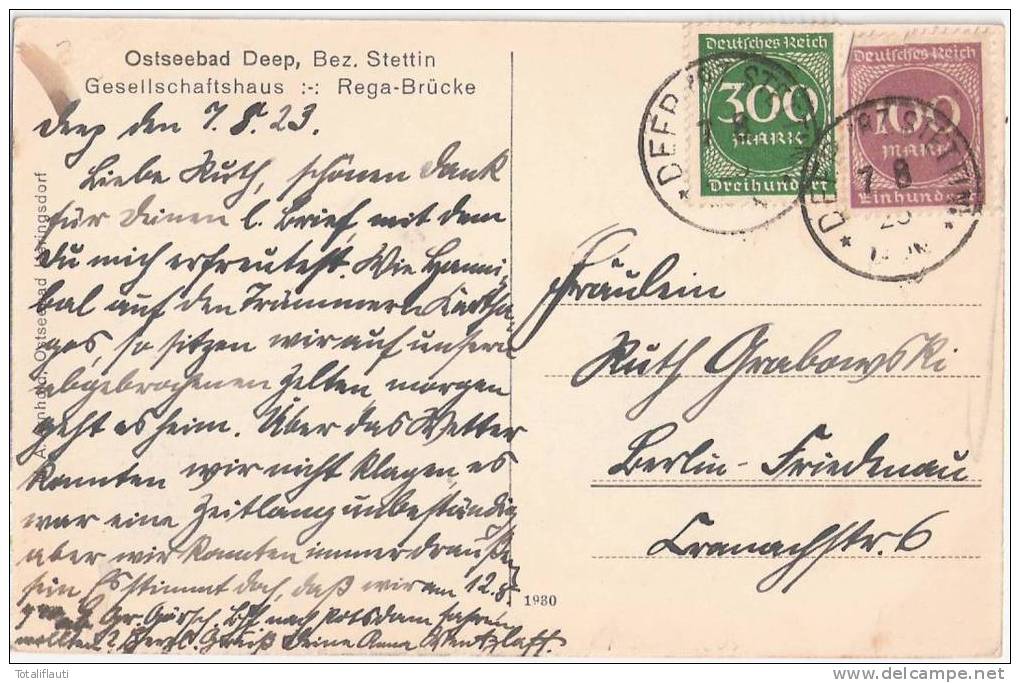 Ostseebad Deep, Bez. Stettin
Gesellschaftshaus :-: Rega-Brücke
Deep den 7.8.23.
Liebe Ruth, schönen Dank
für Deinen l. Brief mit dem
Du mich erfreutest. Wie Hanni-
bal auf den Trümmern Kartha-
gos, so sitzen wir auf unsern
abgebrochenen Zelten, morgen
geht es heim. Über das Wetter
konnten wir nicht klagen, es
war eine Zeitlang unbeständig
aber wir konnten immer draußen
sein. Es stimmt doch, daß wir am 12.8.
Gr. Görsch. Bhf nach Potsdam fahren
wollten? Herzl. Gruß Deine Anna Wentzlaff.
Ostseebad Heringsdorf
1930
Deutsches Reich
300
MARK
Dreihundert
Deutsches Reich
100
MARK
Einhundert
DEEP
7 8
DEEP
STETTIN
7 8
Fräulein
Ruth Grabowski
Berlin-Friedenau
Cranachstr. 6
Totaliflauti
www.delcampe.net